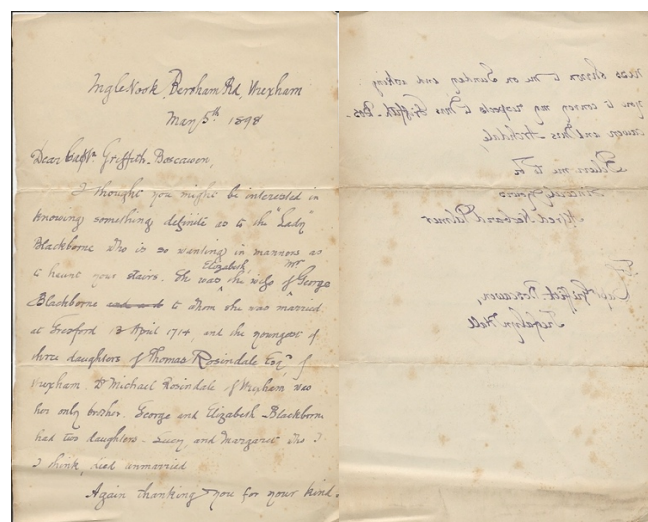 Ingle Nook, Bersham Rd, Wrexham
May 5th 1898
Dear Capt. Griffith-Boscawen,
I thought you might be interested in
knowing something definite as to the "Lady"
Blackborne who is so wanting in manners as
to haunt your stairs. She was Elizabeth the wife of Mr George
Blackborne to whom she was married
at Gresford 13 April 1714, and the youngest of
three daughters of Thomas Rosindale Esqr. of
Wrexham. Dr Michael Rosindale of Wrexham was
her only brother. George and Elizabeth Blackborne
had two daughters - and Margaret who I
I think, died unmarried
Again thanking you for your kind-
ness shown to me on Sunday and asking
you to convey my respects to Mrs Griffith-Bos-
cawen and Mrs Archdale,
Believe me to be
Sincerely yours
Alfred Neobard Palmer
Capt Griffith-Boscawen
Trefalyn Hall